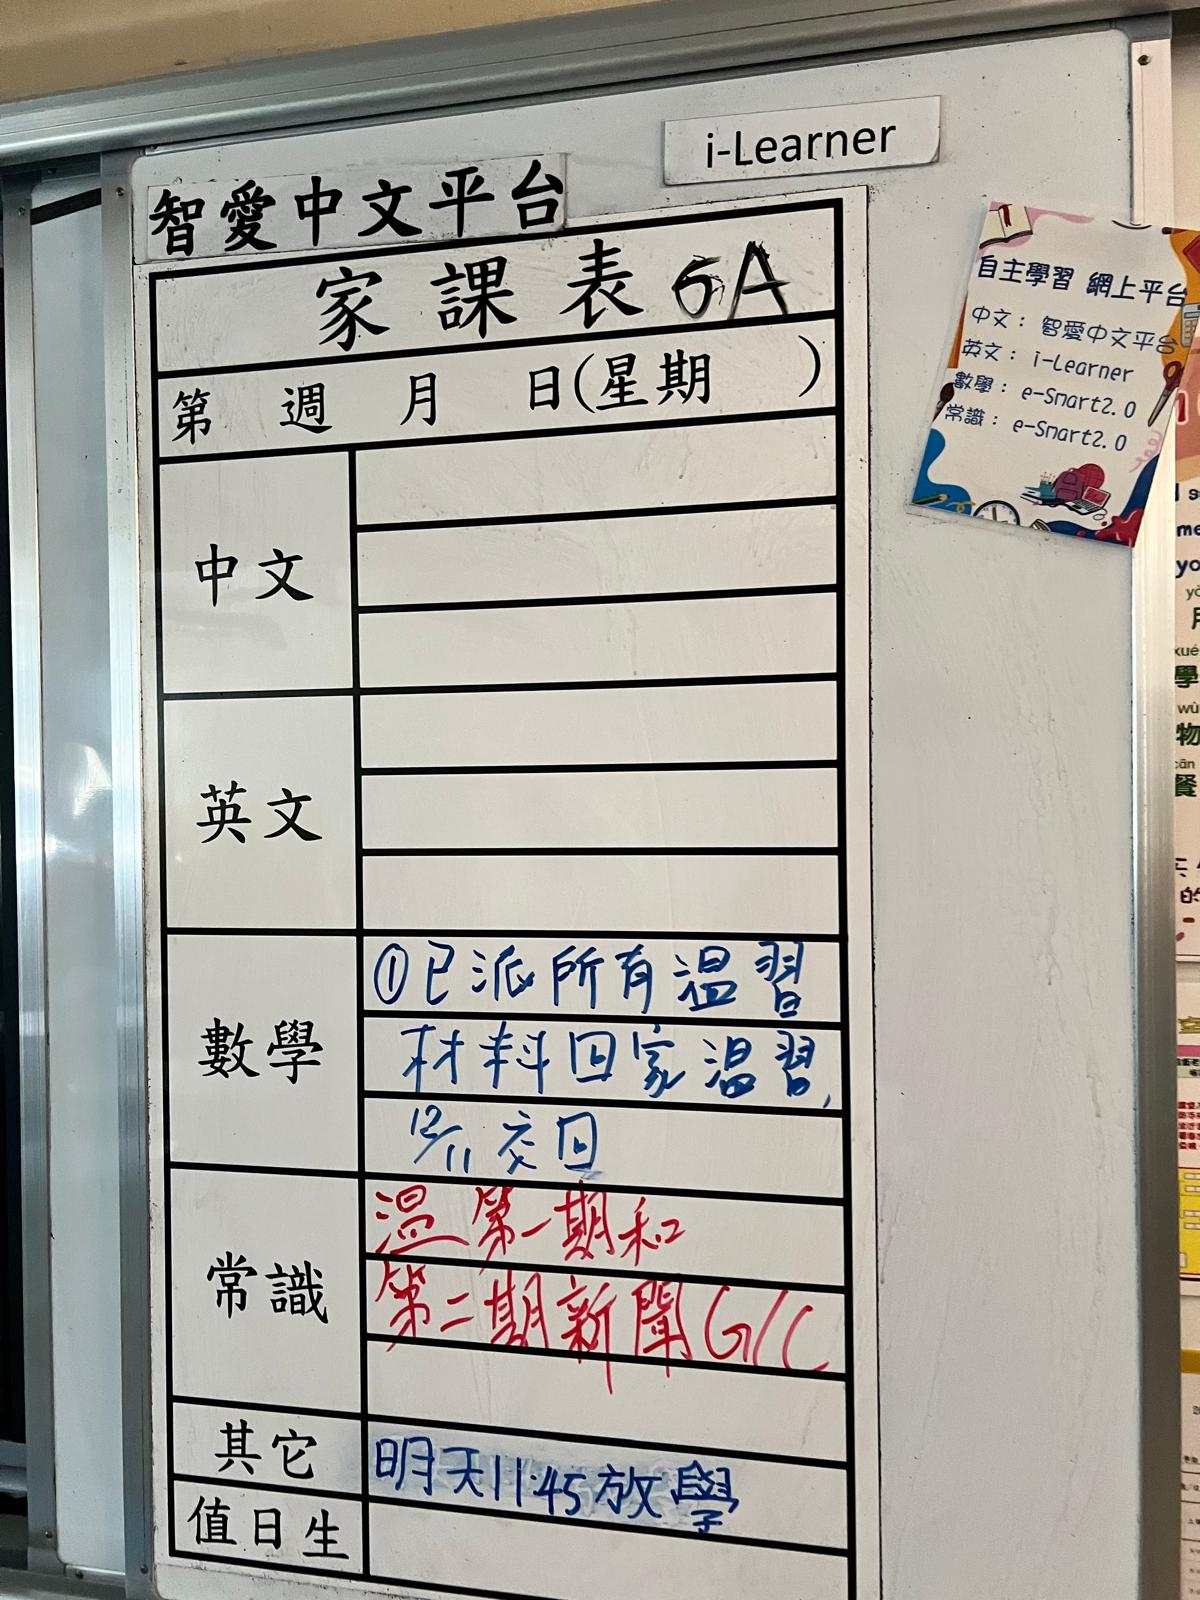 i-Learner
智愛中文平台
家課表 6A
第 週 月 日(星期 )
中文
英文
數學
①已派所有溫習
材料回家溫習,
12/11 交回
常識
溫第一期和
第二期新聞G/C
其它
明天11:45放學
值日生
自主學習 網上平台
中文：智愛中文平台
英文：i-Learner
數學：e-Smart2.0
常識：e-Smart2.0
yo
xué
學
wù
物
cān
餐
的